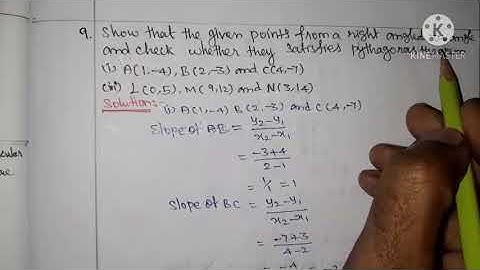 9. Show that the given points from a right
and check whether they satisfies pythagoras
(i) A(1,-4), B(2,-3) and C(4,-7)
(ii) L(0,5), M(9,12) and N(3,14)
Solution:- (i) A(1,-4), B(2,-3) and C(4,-7)
Slope of AB = y₂-y₁ / x₂-x₁
= -3+4 / 2-1
= 1/1 = 1
Slope of BC = y₂-y₁ / x₂-x₁
= -7+3 / 4-2
K
KINEMASTER
cular